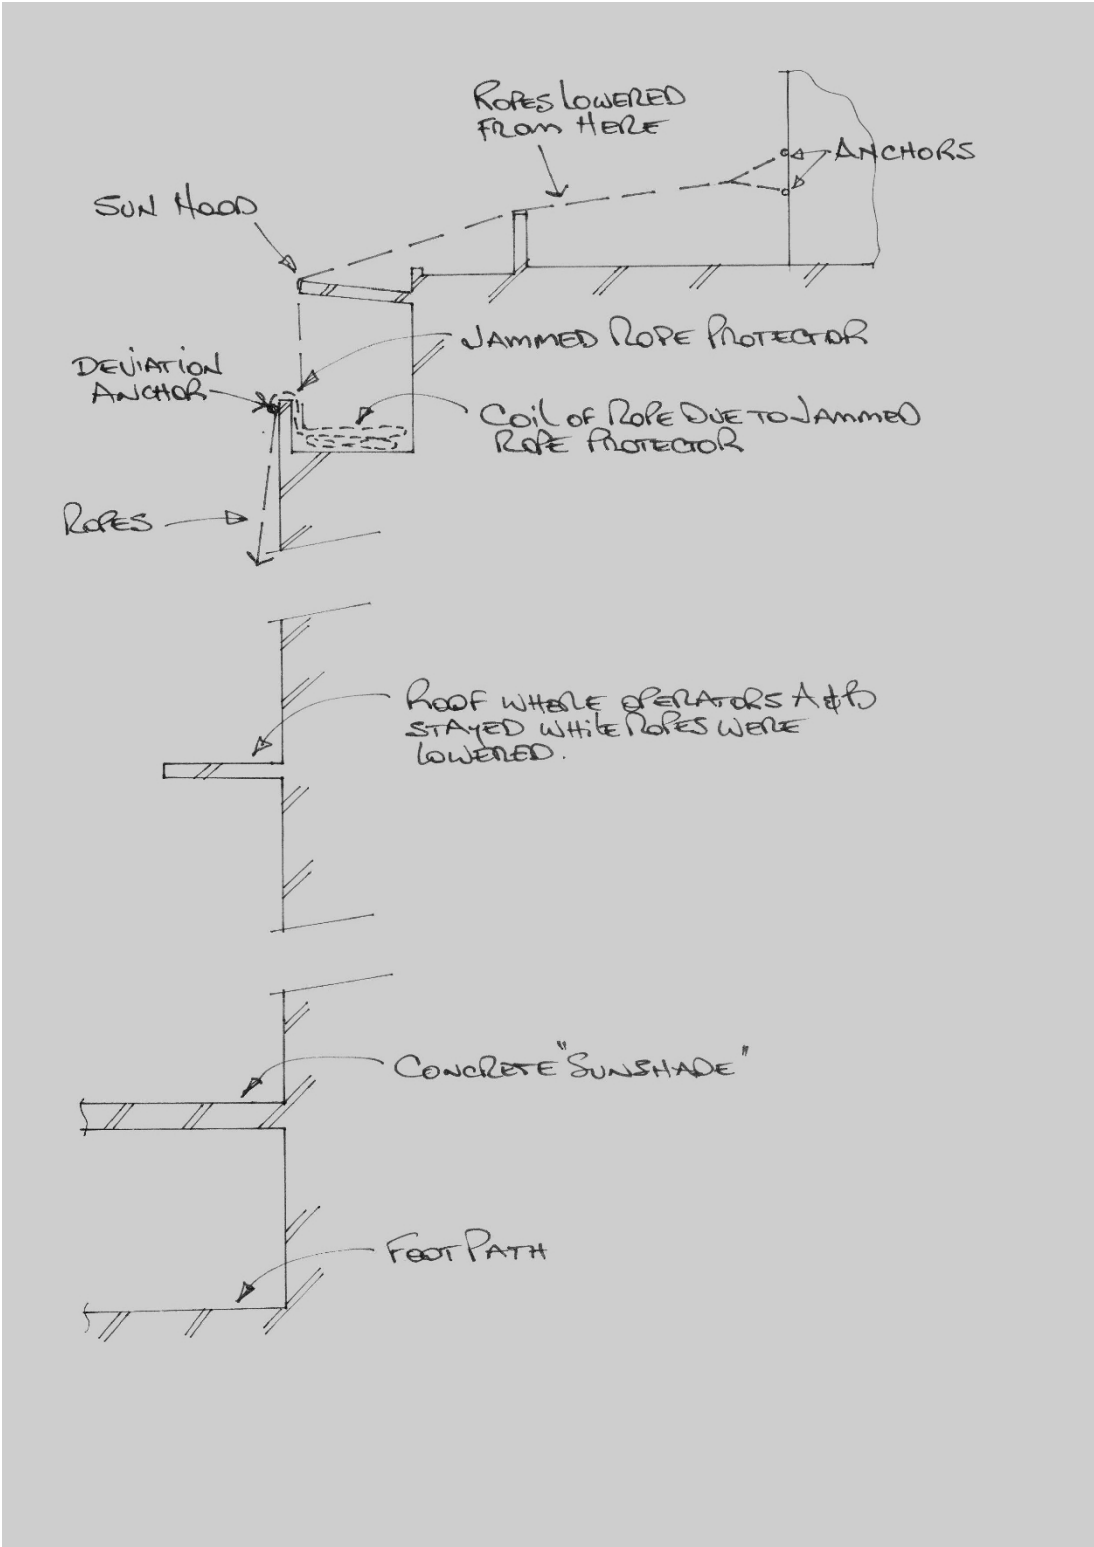 ROPES LOWERED
FROM HERE
ANCHORS
SUN HOOD
JAMMED ROPE PROTECTOR
DEVIATION
ANCHOR
COIL OF ROPE DUE TO JAMMED
ROPE PROTECTOR
ROPES
ROOF WHERE OPERATORS A & B
STAYED WHILE ROPES WERE
LOWERED.
CONCRETE "SUNSHADE"
FOOT PATH